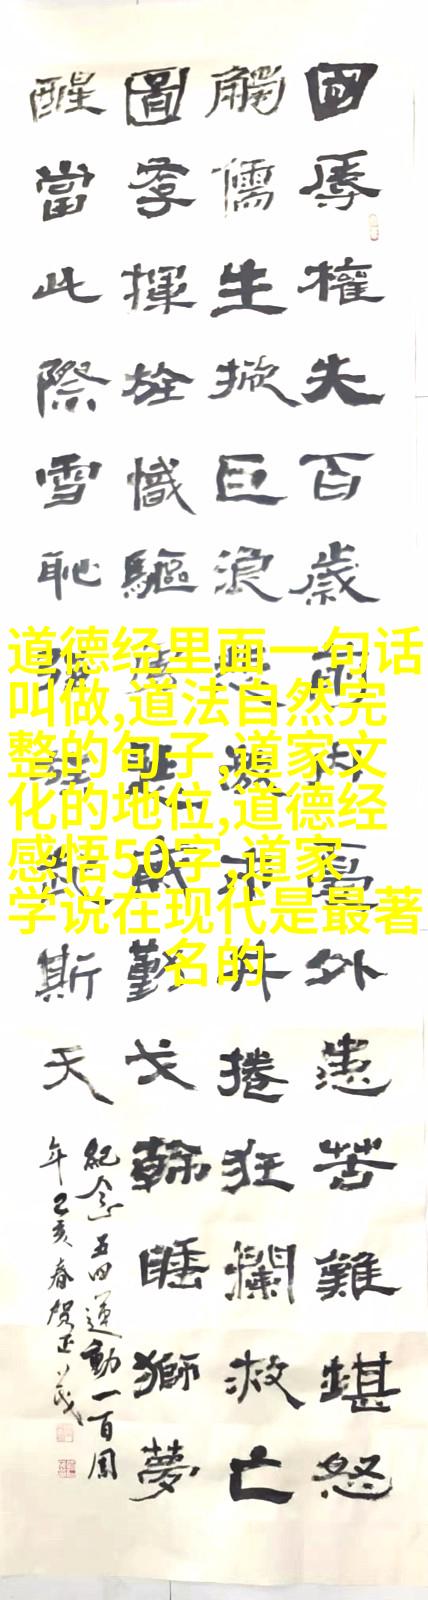 國辱權失百歲前内憂外患苦難堪怒
觸儒生掀巨浪激市井捲狂瀾救亡
圖存揮旌幟驅戈幹睡獅夢
醒當此際雪恥強斯天
紀念五四運動一百周
年己亥春賀正茂
道德经里面一句话
叫做,道法自然完
整的句子,道家文
化的地位,道德经
感悟50字,道家
学说在现代是最著
名的